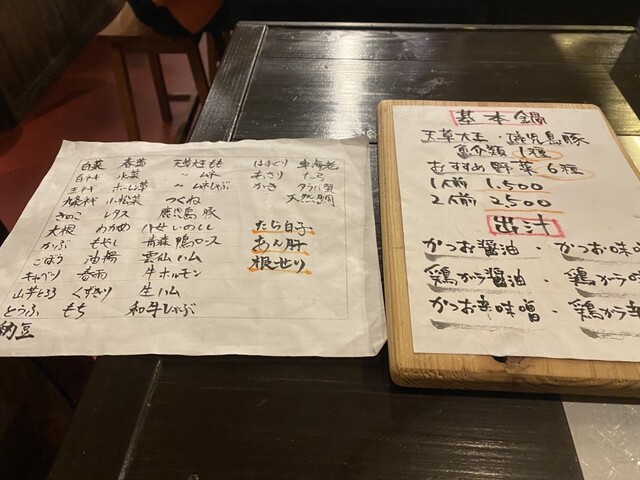 白菜 春菊 天草大王もも はまぐり 車海老
白ネギ 水菜 〃 ムネ あさり たら
玉ネギ ホーレン草 〃 ムネしゃぶ かき タラバ蟹
九条ネギ 小松菜 つくね 天然鯛
きのこ レタス 鹿児島豚
大根 わかめ 八女いのしし たら白子
かぶ もやし 青森鴨ロース あん肝
ごぼう 油揚 雲仙ハム 根せり
キャベツ 春雨 牛ホルモン
山芋とろろ くずきり 生ハム
とうふ もち 和牛しゃぶ
納豆
基本鍋
天草大王・鹿児島豚
魚介類 1種
おすすめ野菜 6種
1人前 1,500
2人前 2500
出汁
かつお醤油・かつお味噌
鶏がら醤油・鶏がら味
かつお辛味噌・鶏がら辛